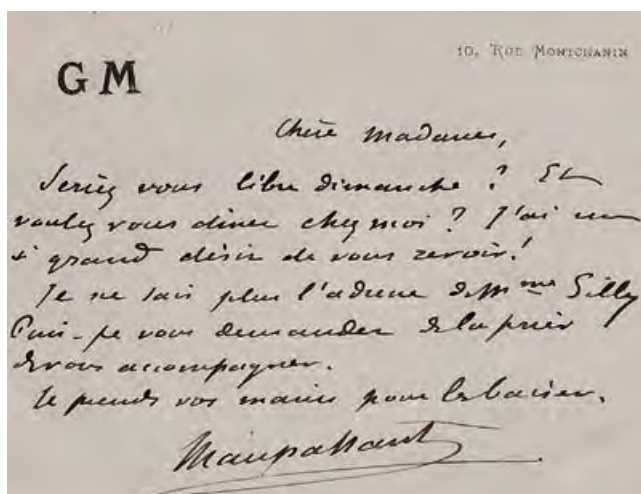 10, RUE MONTCHANIN
G M
Chère Madame,
Seriez vous libre dimanche ? Et
voulez vous diner chez moi ? J'ai un
si grand désir de vous revoir !
Je ne sais plus l'adresse de Mme Gilly
Puis-je vous demander de la prier
de vous accompagner.
Je prends vos mains pour les baiser.
Maupassant